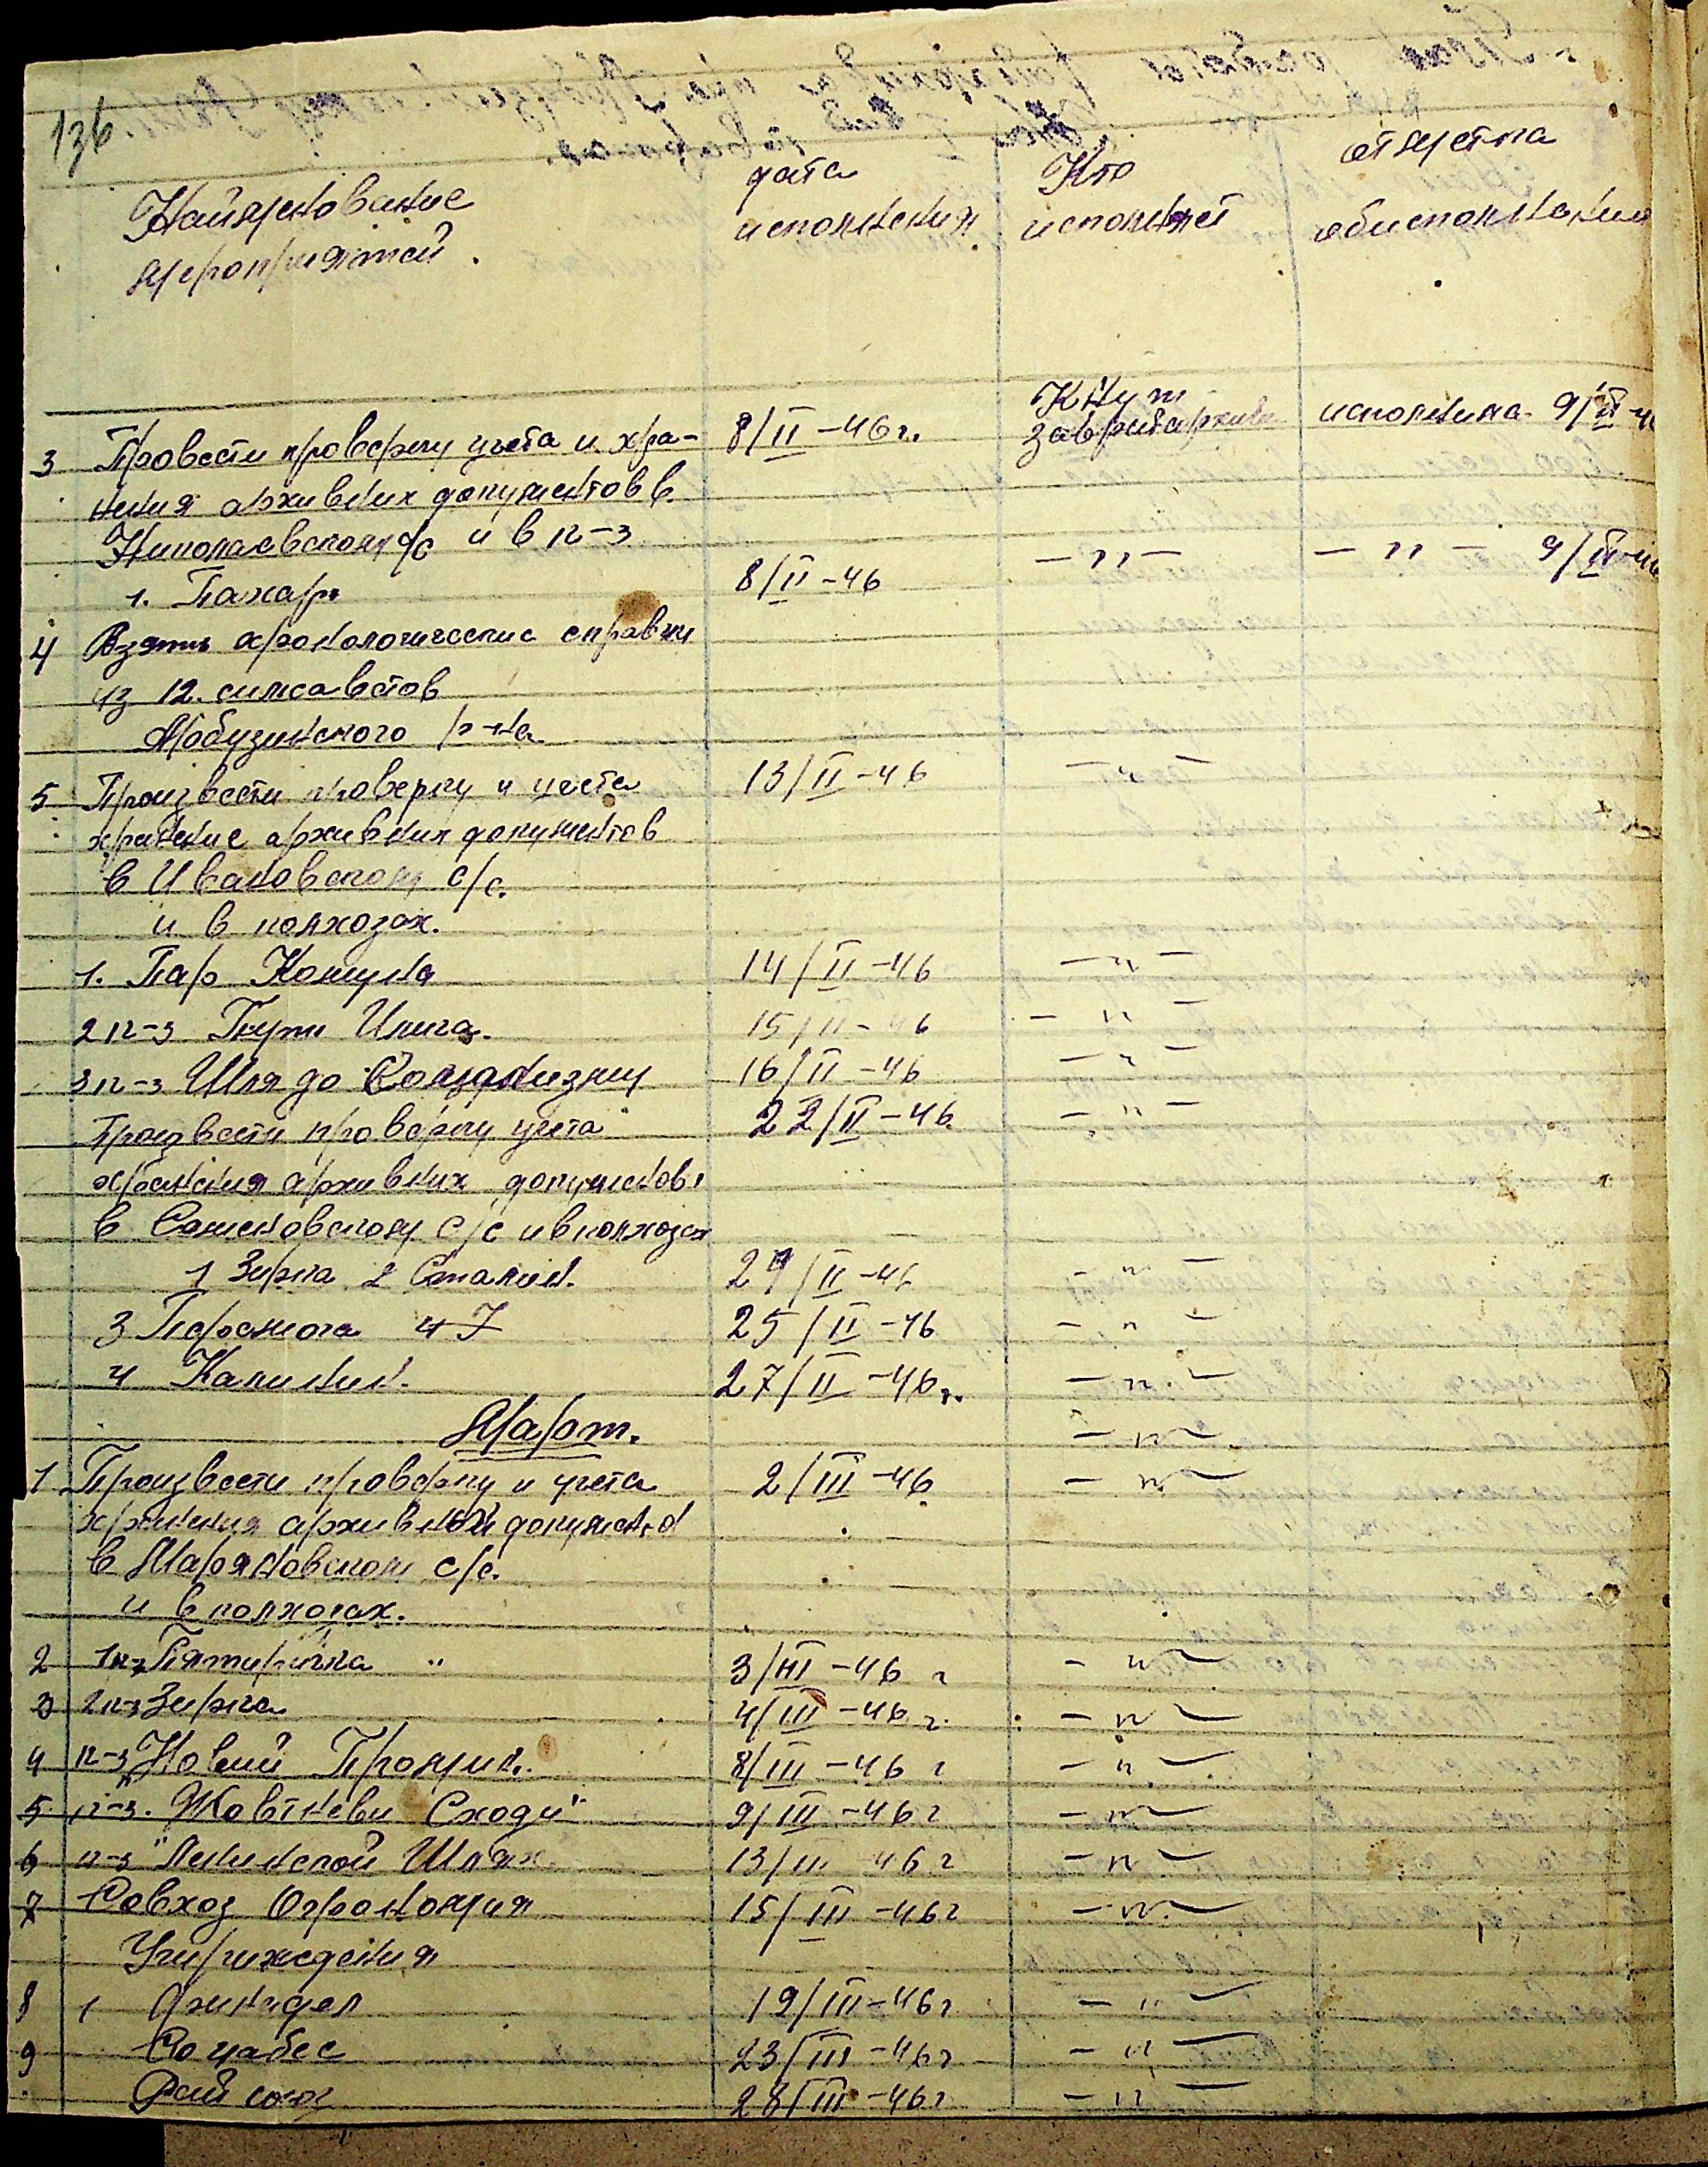 136
Наименование мероприятий.
дата исполнения
Кто исполняет
отметка обисполнении
3 Провести проверку учета и хра-
нения архивних документов в
Николаевском с/с и в к-з
1. Пахарь
8/II-46 г.
Кнут
исполнина 9/II-46
8/II-46
—"—
—"— 9/II-46
4 Взять хронологические справки
из 12. силсаветов
Арбузинского р-на
5 Произвести проверку и учета
13/II-46 —"—
хранение архивних документов
в Ивановском с/с.
и в колхозах.
1. Пар Комуна 14/II-46 —"—
2 к-з Пути Илича. 15/II-46 —"—
3 к-з Шлях до Соцiализму 16/II-46 —"—
Произвести проверку учета 22/II-46 —"—
хранения архивних документов
в Семеновском с/с и в колхозах
1 Зирка 2 Сталин. 24/II-46 —"—
3 Перемога 25/II-46 —"—
4 Калинин. 27/II-46 г. —"—
Март. —"—
1 Произвести проверку и учета 2/III-46 —"—
хранения архивной документ
в Маряновском с/с.
и в колхозах.
2 1 к-з Пятирiчка " 3/III-46 г —"—
3 2 к-з Зирка 4/III-46 г. —"—
4 к-з "Новий Промiнь. 8/III-46 г —"—
5 к-з. Жовтневи Сходи" 9/III-46 г —"—
6 к-з "Ленинской Шлях 13/III 46 г —"—
7 Совхоз Огрономия 15/III-46 г —"—
Учириждения
8 1 Финатдел 19/III-46 г —"—
9 Социабес 23/III-46 г —"—
Рай союз 28/III-46 г —"—